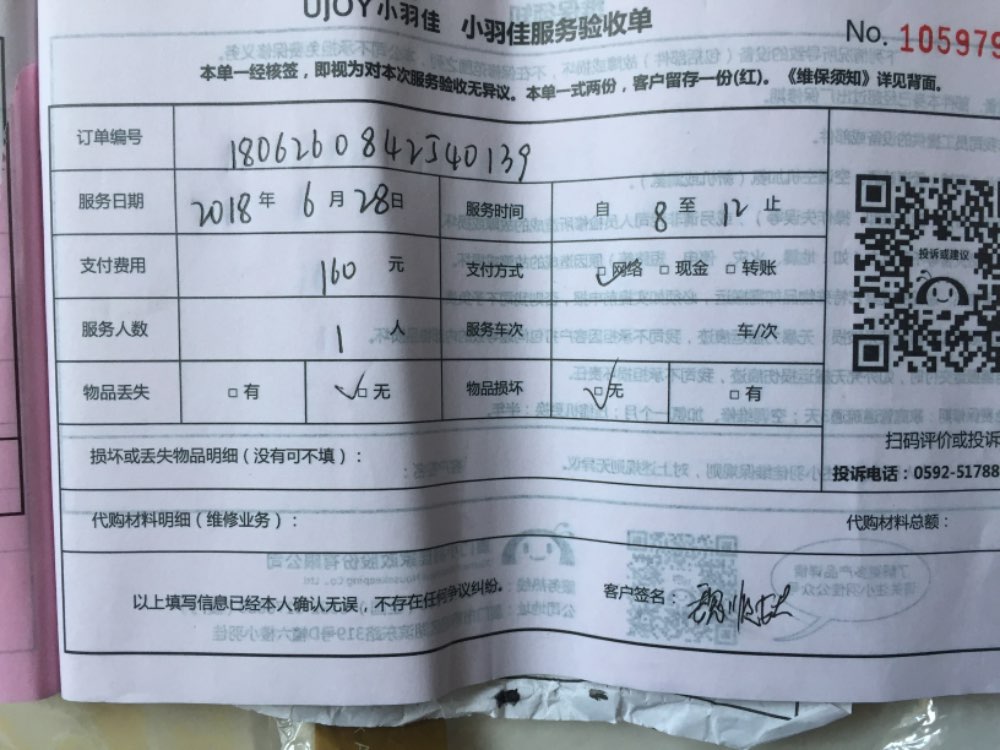 UJOY小羽佳 小羽佳服务验收单
No. 105979
本单一经核签，即视为对本次服务验收无异议。本单一式两份，客户留存一份(红)。《维保须知》详见背面。
订单编号 1806260842J40139
服务日期 2018年 6月28日 服务时间 自 8 至 12 止
投诉或建议
支付费用 160 元 支付方式 网络 现金 转账
服务人数 1 人 服务车次 车/次
物品丢失 有 无 物品损坏 无 有
扫码评价或投诉
损坏或丢失物品明细（没有可不填）：
投诉电话：0592-51788
代购材料明细（维修业务）： 代购材料总额：
以上填写信息已经本人确认无误，不存在任何争议纠纷。 客户签名：